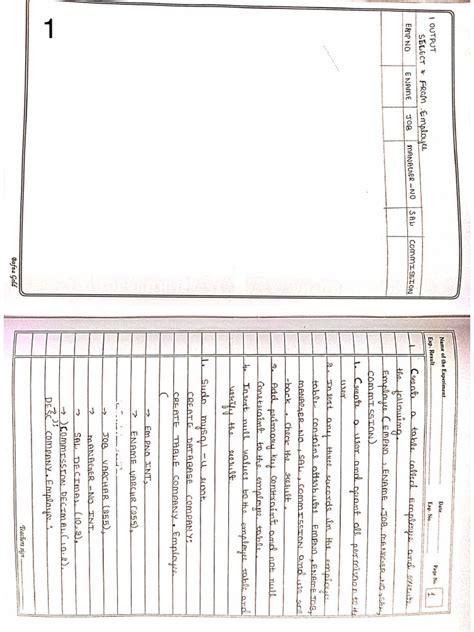 1
1 OUTPUT
SELECT * FROM Employee
EMPNO ENAME JOB MANAGER-NO SAL COMMISSION
Name of the Experiment
Date
Exp. Result
Exp. No.
Page No. 1
1 Create a table called Employee and execute
the following.
Employee (EMPNO, ENAME, JOB, MANAGER-NO, SAL,
COMMISSION)
1. Create a user and grant all permission to the
user
2. Insert any three records in the employee
table contains attributes EMPNO, ENAME, JOB,
MANAGER-NO, SAL, COMMISSION and use
back. Check the result.
3. Add primary key constraint and not null
constraint to the employee table.
4. Insert null values to the employee table and
verify the result.
1. Sudo mysql -u root
CREATE DATABASE COMPANY;
CREATE TABLE COMPANY. Employee
(
→ EMPNO INT,
→ ENAME VARCHAR (255),
→ JOB VARCHAR (255),
→ MANAGER-NO INT,
→ SAL DECIMAL (10,2),
→ COMMISSION DECIMAL (10,2),
→ );
DESC COMPANY. Employee;